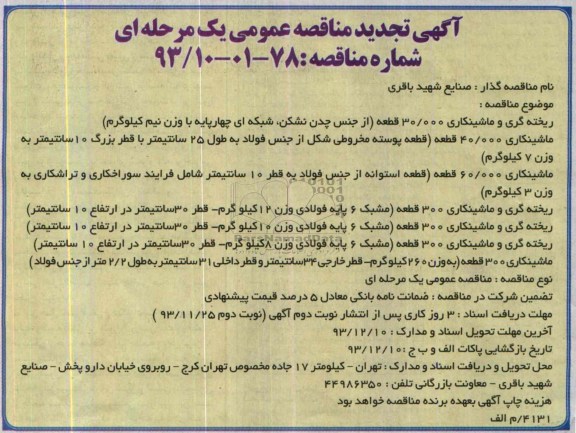 آگهی تجدید مناقصه عمومی یک مرحله ای
شماره مناقصه: ۷۸-۰۱-۹۳/۱۰
نام مناقصه گذار : صنایع شهید باقری
موضوع مناقصه :
ریخته گری و ماشینکاری ۳۰/۰۰۰ قطعه (از جنس چدن نشکن، شبکه ای چهارپایه با وزن نیم کیلوگرم)
ماشینکاری ۴۰/۰۰۰ قطعه (قطعه پوسته مخروطی شکل از جنس فولاد به طول ۲۵ سانتیمتر با قطر بزرگ ۱۰ سانتیمتر به
وزن ۷ کیلوگرم)
ماشینکاری ۶۰/۰۰۰ قطعه (قطعه استوانه از جنس فولاد به قطر ۱۰ سانتیمتر شامل فرایند سوراخکاری و تراشکاری به
وزن ۳ کیلوگرم)
ریخته گری و ماشینکاری ۳۰۰ قطعه (مشبک ۶ پایه فولادی وزن ۱۲کیلو گرم- قطر ۳۰سانتیمتر در ارتفاع ۱۰ سانتیمتر)
ریخته گری و ماشینکاری ۳۰۰ قطعه (مشبک ۶ پایه فولادی وزن ۱۰کیلو گرم- قطر ۳۰سانتیمتر در ارتفاع ۱۰ سانتیمتر)
ریخته گری و ماشینکاری ۳۰۰ قطعه (مشبک ۶ پایه فولادی وزن ۸کیلو گرم- قطر ۳۰سانتیمتر در ارتفاع ۱۰ سانتیمتر)
ماشینکاری ۳۰۰ قطعه (به وزن ۲۶۰ کیلوگرم- قطر خارجی ۳۴سانتیمتر و قطر داخلی ۳۱ سانتیمتر به طول ۲/۲ متر از جنس فولاد)
نوع مناقصه : مناقصه عمومی یک مرحله ای
تضمین شرکت در مناقصه : ضمانت نامه بانکی معادل ۵ درصد قیمت پیشنهادی
مهلت دریافت اسناد : ۳ روز کاری پس از انتشار نوبت دوم آگهی (نوبت دوم ۹۳/۱۱/۲۵ )
آخرین مهلت تحویل اسناد و مدارک : ۹۳/۱۲/۱۰
تاریخ بازگشایی پاکات الف و ب ج : ۹۳/۱۲/۱۰
محل تحویل و دریافت اسناد و مدارک : تهران - کیلومتر ۱۷ جاده مخصوص تهران کرج - روبروی خیابان دارو پخش - صنایع
شهید باقری - معاونت بازرگانی تلفن : ۴۴۹۸۶۳۵۰
هزینه چاپ آگهی بعهده برنده مناقصه خواهد بود
۴۱۳۱/م الف